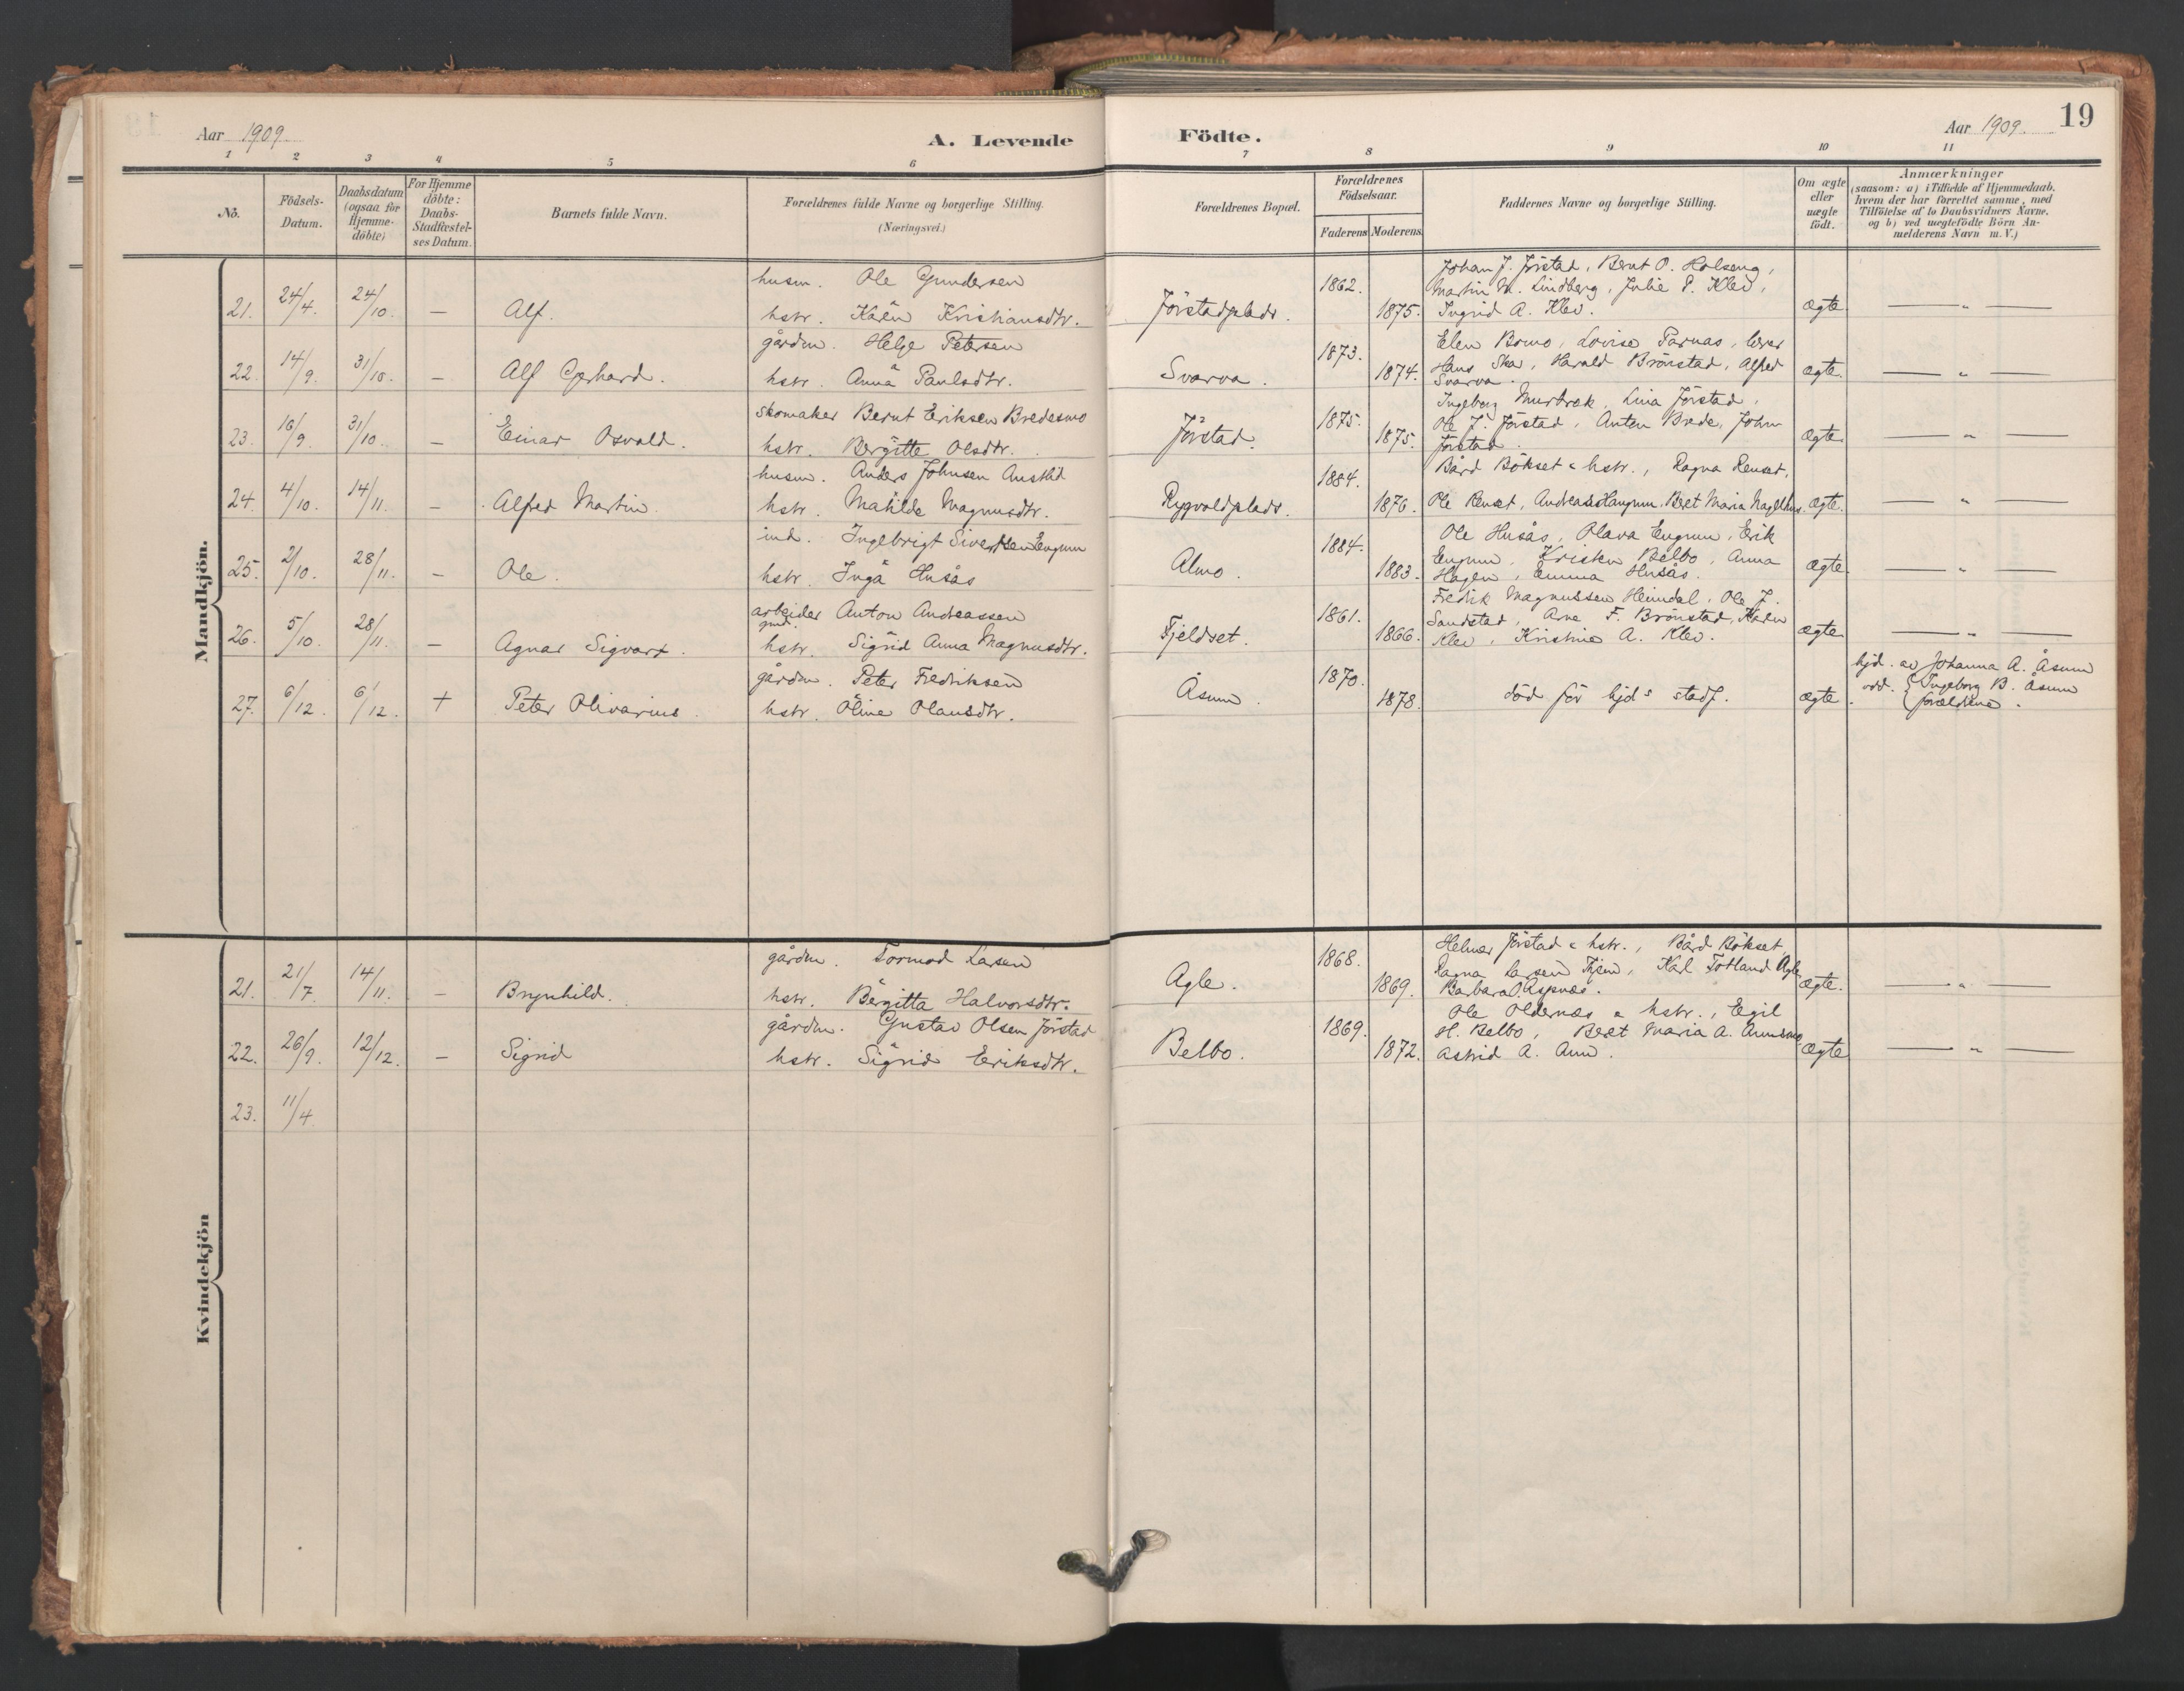 Aar 1909.
A. Levende Födte.
Aar 1909. 19
1 2 3 4 5 6 7 8 9 10 11
No.
Födsels-
Datum.
Daabsdatum
(ogsaa for
Hjemme-
döbte)
For Hjemme
döbte:
Daabs-
Stadfestel-
ses Datum.
Barnets fulde Navn.
Forældrenes fulde Navne og borgerlige Stilling.
(Næringsvei.)
Forældrenes Bopæl.
Forældrenes
Födselsaar.
Faderens Moderens
Faddernes Navne og borgerlige Stilling.
Om ægte
eller
uægte
født.
Anmærkninger
(saasom: a) i Tilfælde af Hjemmedaab.
hvem der har forrettet samme, med
Tilföielse af to Daabsvidners Navne.
og b) ved uægtefödte Börn An-
melderens Navn m. V.)
Mandkjön.
husm. Ole Gundersen
21. 24/4. 24/10. — Alf.
hstr. Karen Kristiansdtr.
Jörstadplads. 1862. 1875.
Johan J. Jörstad, Bernt O. Holseng,
Martin M. Lindberg, Julie P. Klev,
Ingrid A. Klev.
ægte — " —
gårdm. Helge Petersen
22. 14/9. 31/10. — Alf Gerhard.
hstr. Anna Paulsdtr.
Svarva. 1873. 1874.
Elen Bomo, Lovise Parnas, lærer
Hans Ska, Harald Brönstad, Alfred
Svarva.
ægte. — " —
skomaker Bernt Eriksen Bredesmo
23. 16/9. 31/10. — Einar Osvald.
hstr. Bergitte Olsdtr.
Jörstad. 1875. 1875.
Ingeborg Murtrak, Lina Jörstad,
Ole J. Jörstad, Anton Brede, John
Jörstad.
ægte. — " —
husm. Anders Johnsen Austlid
24. 4/10. 14/11. — Alfred Martin.
hstr. Matilde Magnusdtr.
Rygvoldplads. 1884. 1876.
Bård Bökset & hstr., Ragna Renset,
Ole Renset, Andreas Haugum, Beret Maria Nagelhus.
ægte. — " —
ind. Ingebrigt Sivertsen Engum
25. 2/10. 28/11. — Ole.
hstr. Inga Husås
Almo. 1884. 1883.
Ole Husås, Olava Engum, Erik
Engum, Kristen Belbo, Anna
Hagen, Emma Husås.
ægte. — " —
arbeider Anton Andreassen
26. 5/10. 28/11. — Agnar Sigvart.
hstr. Sigrid Anna Magnusdtr.
Fjeldset. 1861. 1866.
Fredrik Magnussen Heimdal, Ole J.
Sandstad, Arne F. Brönstad, Karen
Klev, Kristine A. Klev.
ægte — " —
gårdm. Peter Fredriksen
27. 6/12. 6/12. + Peter Olivarius.
hstr. Oline Olausdtr.
Åsum. 1870. 1878.
död för hjds stadf.
ægte.
hjd. av Johanna A. Åsum
vid. Ingeborg B. Åsum
forældrene.
Kvindekjön
gårdm. Tormod Larsen
21. 21/7 14/11. — Brynhild.
hstr. Bergitta Halvorsdtr.
Agle. 1868. 1869.
Helmer Jörstad & hstr., Bård Bökset
Ragna Larsen Hjem, Karl Totland Agle
Barbara O. Aspnæs.
ægte. — " —
gårdm. Gustav Olsen Jörstad
22. 26/9. 12/12. — Sigrid
hstr. Sigrid Eriksdtr.
Belbo. 1869. 1872.
Ole Oldernæs & hstr., Egil
H. Belbo, Beret Maria A. Aunsmo,
Astrid A. Aun.
ægte — " —
23. 11/4.